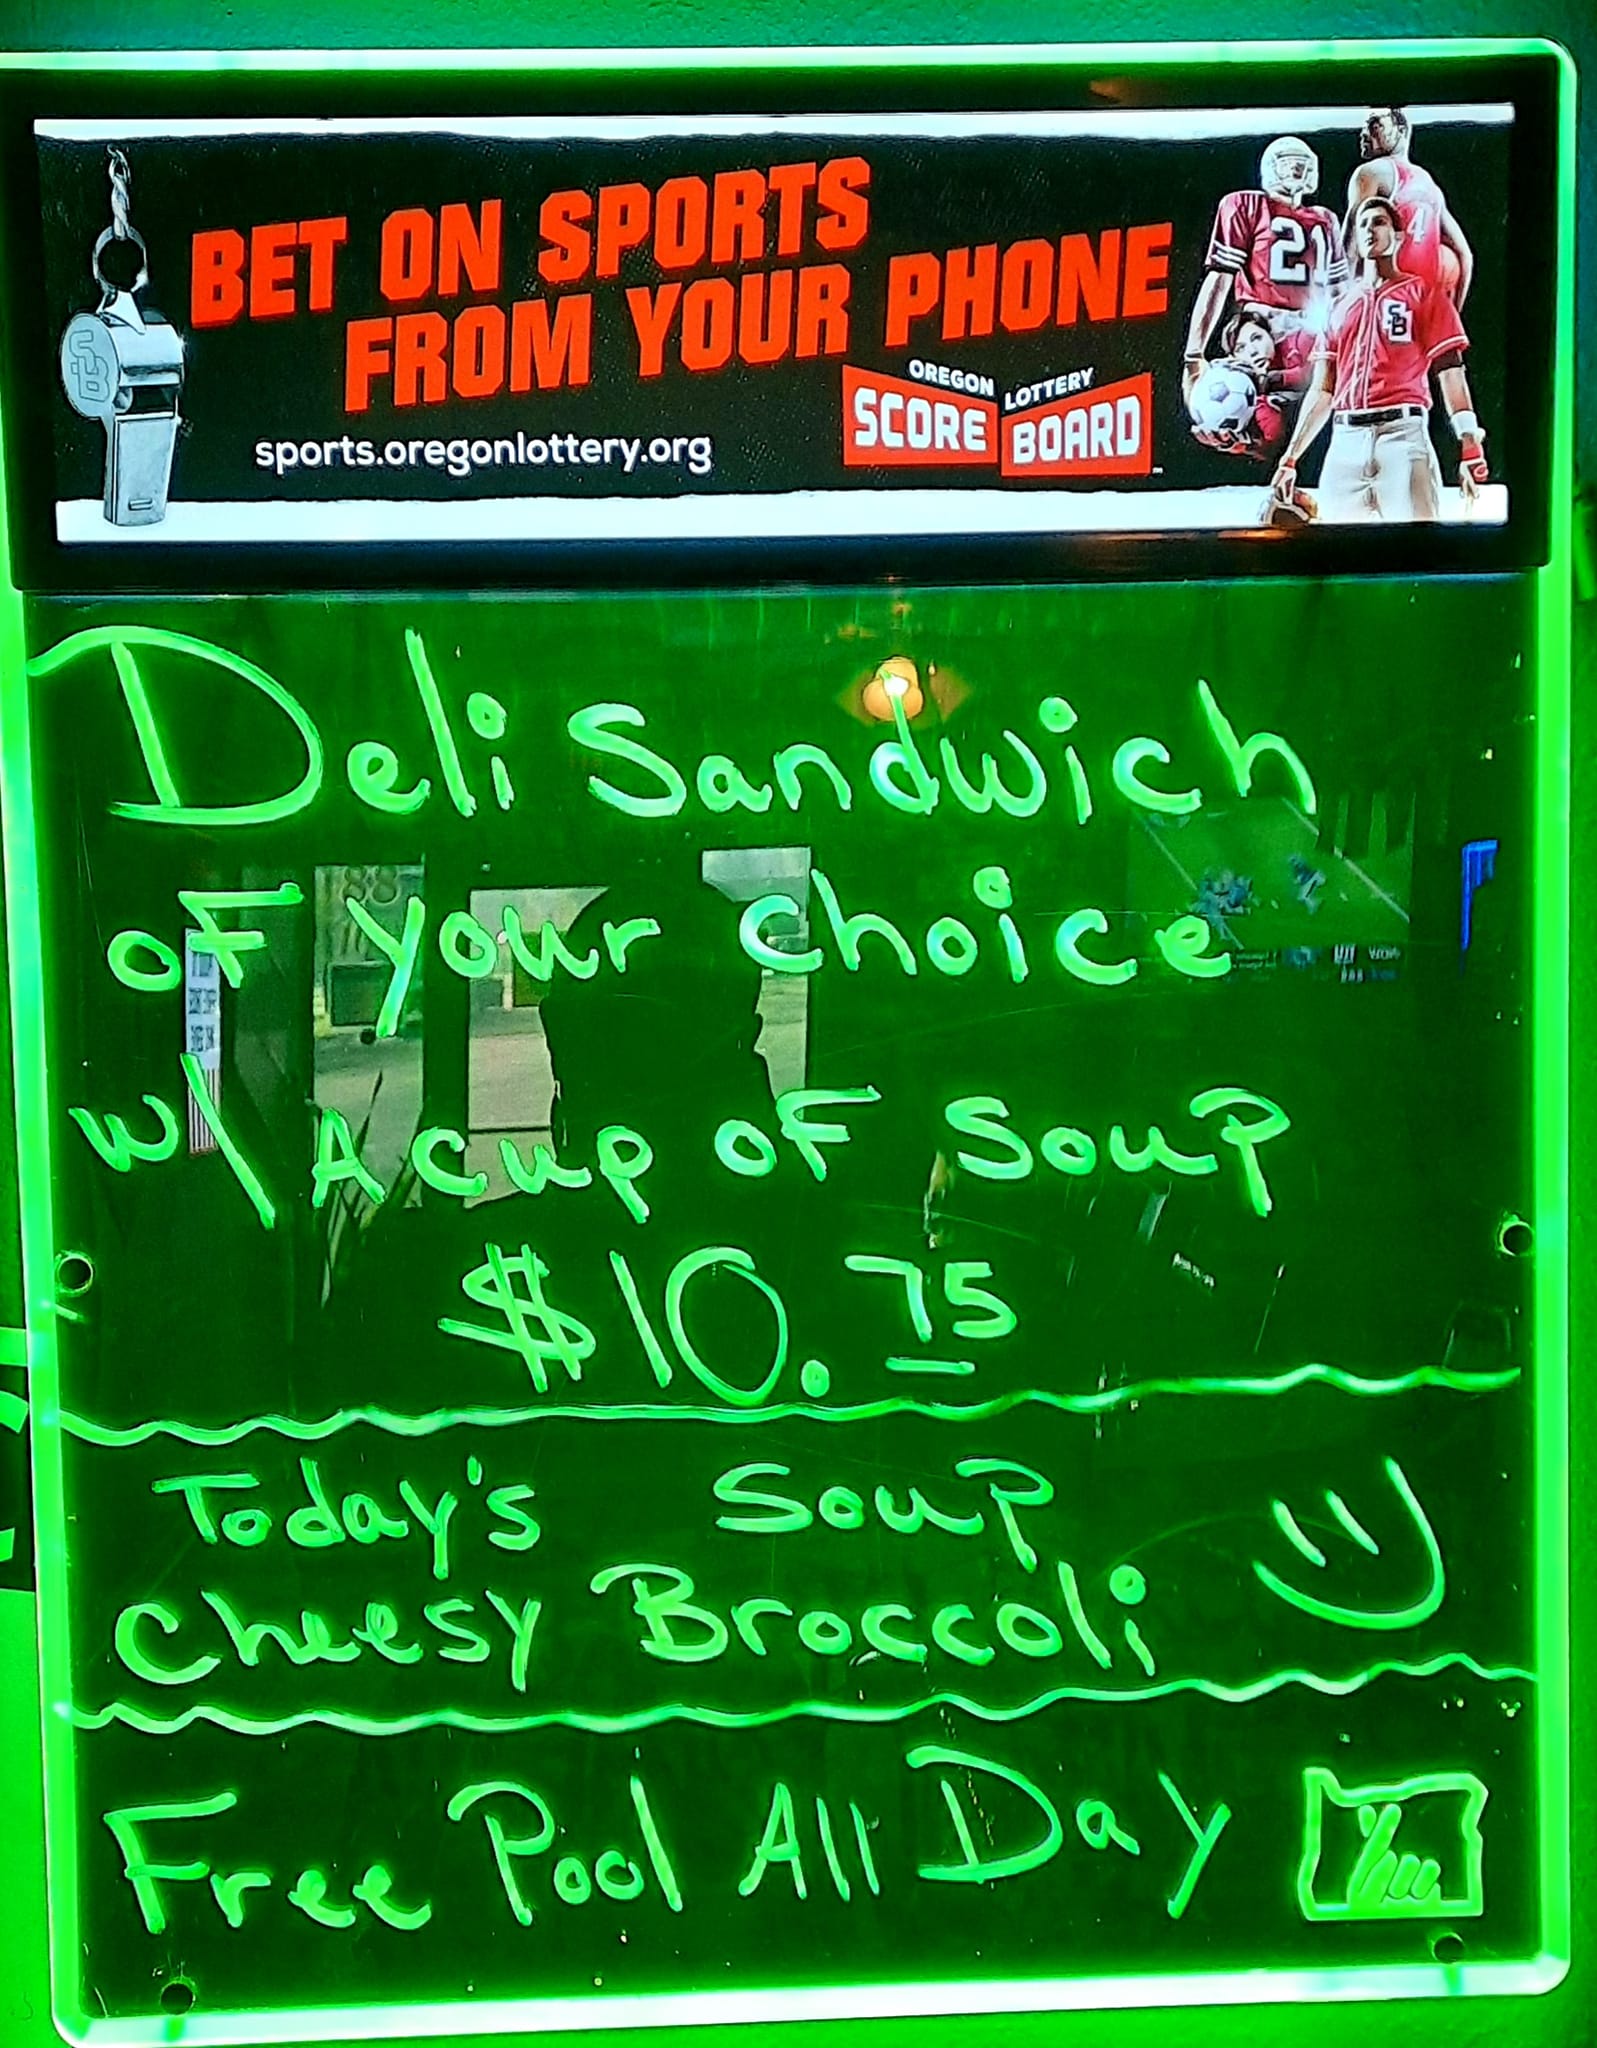 BET ON SPORTS
FROM YOUR PHONE
OREGON LOTTERY
SCORE BOARD
sports.oregonlottery.org
SB
21
4
SB
Deli Sandwich
of your choice
w/ A cup of Soup
$10.75
Today's Soup
Cheesy Broccoli
Free Pool All Day